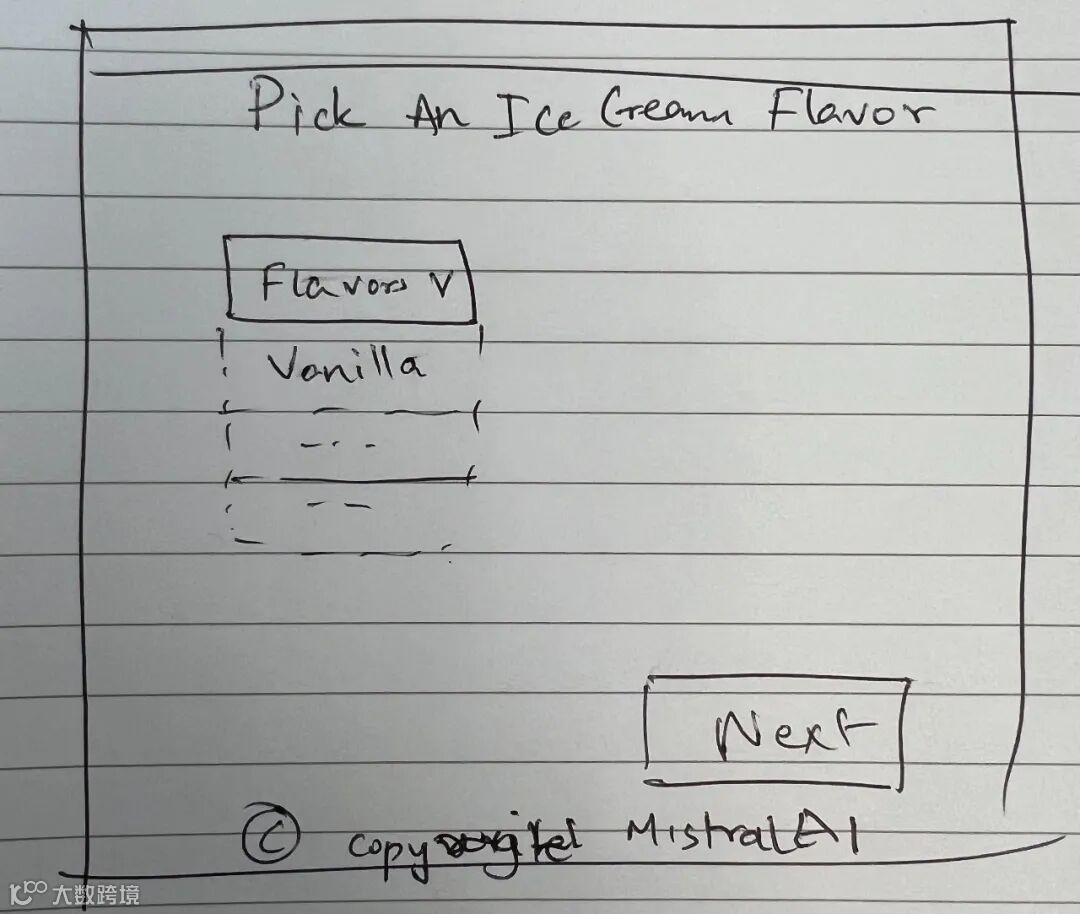 Pick An Ice Cream Flavor
Flavors V
Vanilla
Next
© MistralAI
大数跨境